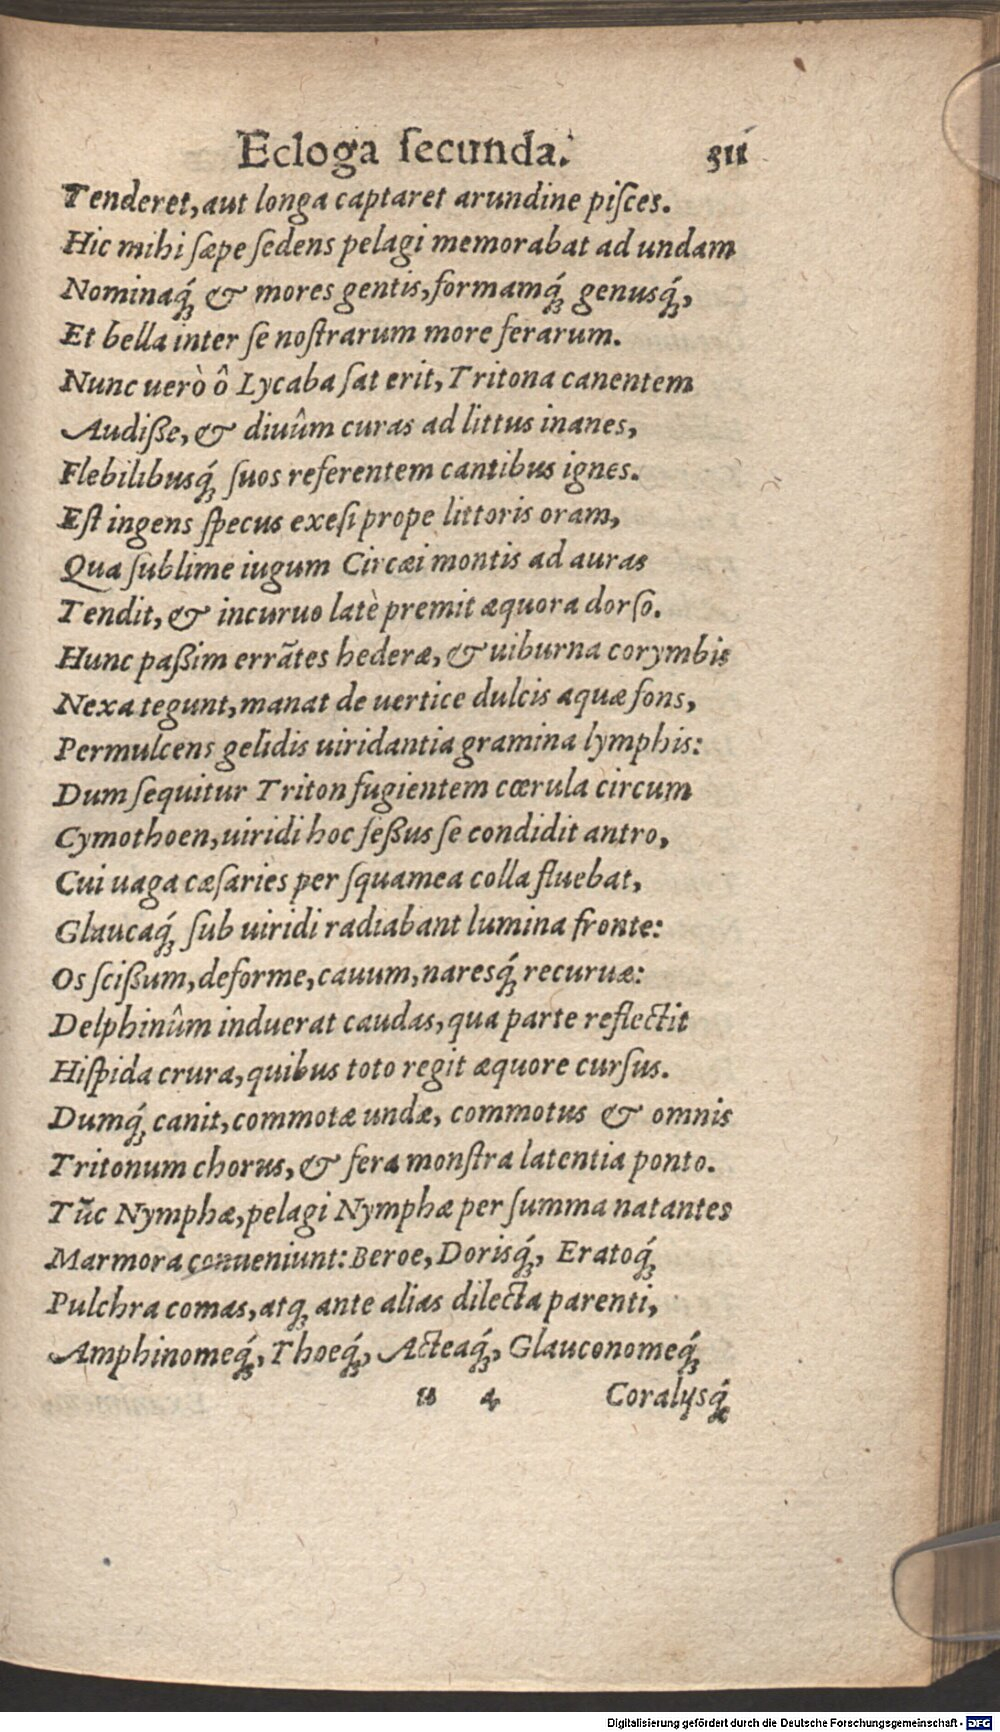 Ecloga ſecunda. 311
Tenderet, aut longa captaret arundine piſces.
Hic mihi ſæpe ſedens pelagi memorabat ad undam
Nominaq́ꝫ & mores gentis, formamq́ꝫ genusq́ꝫ,
Et bella inter ſe noſtrarum more ferarum.
Nunc uerò ô Lycaba ſat erit, Tritona canentem
Audiße, & diuûm curas ad littus inanes,
Flebilibusq́ꝫ ſuos referentem cantibus ignes.
Eſt ingens ſpecus exeſi prope littoris oram,
Qua ſublime iugum Circæi montis ad auras
Tendit, & incuruo latè premit æquora dorſo.
Hunc paßim errātes hederæ, & uiburna corymbis
Nexa tegunt, manat de uertice dulcis aquæ fons,
Permulcens gelidis uiridantia gramina lymphis:
Dum ſequitur Triton fugientem cœrula circum
Cymothoen, uiridi hoc ſeßus ſe condidit antro,
Cui uaga cæſaries per ſquamea colla fluebat,
Glaucaq́ꝫ ſub uiridi radiabant lumina fronte:
Os ſcißum, deforme, cauum, naresq́ꝫ recuruæ:
Delphinûm induerat caudas, qua parte reflectit
Hiſpida crura, quibus toto regit æquore curſus.
Dumq́ꝫ canit, commotæ undæ, commotus & omnis
Tritonum chorus, & fera monſtra latentia ponto.
Tūc Nymphæ, pelagi Nymphæ per ſumma natantes
Marmora conueniunt: Beroe, Dorisq́ꝫ, Eratoq́ꝫ
Pulchra comas, atqꝫ ante alias dilecta parenti,
Amphinomeq́ꝫ, Thoeq́ꝫ, Acteaq́ꝫ, Glauconomeq́ꝫ
u 4 Coralysq́ꝫ
Digitalisierung gefördert durch die Deutsche Forschungsgemeinschaft - DFG